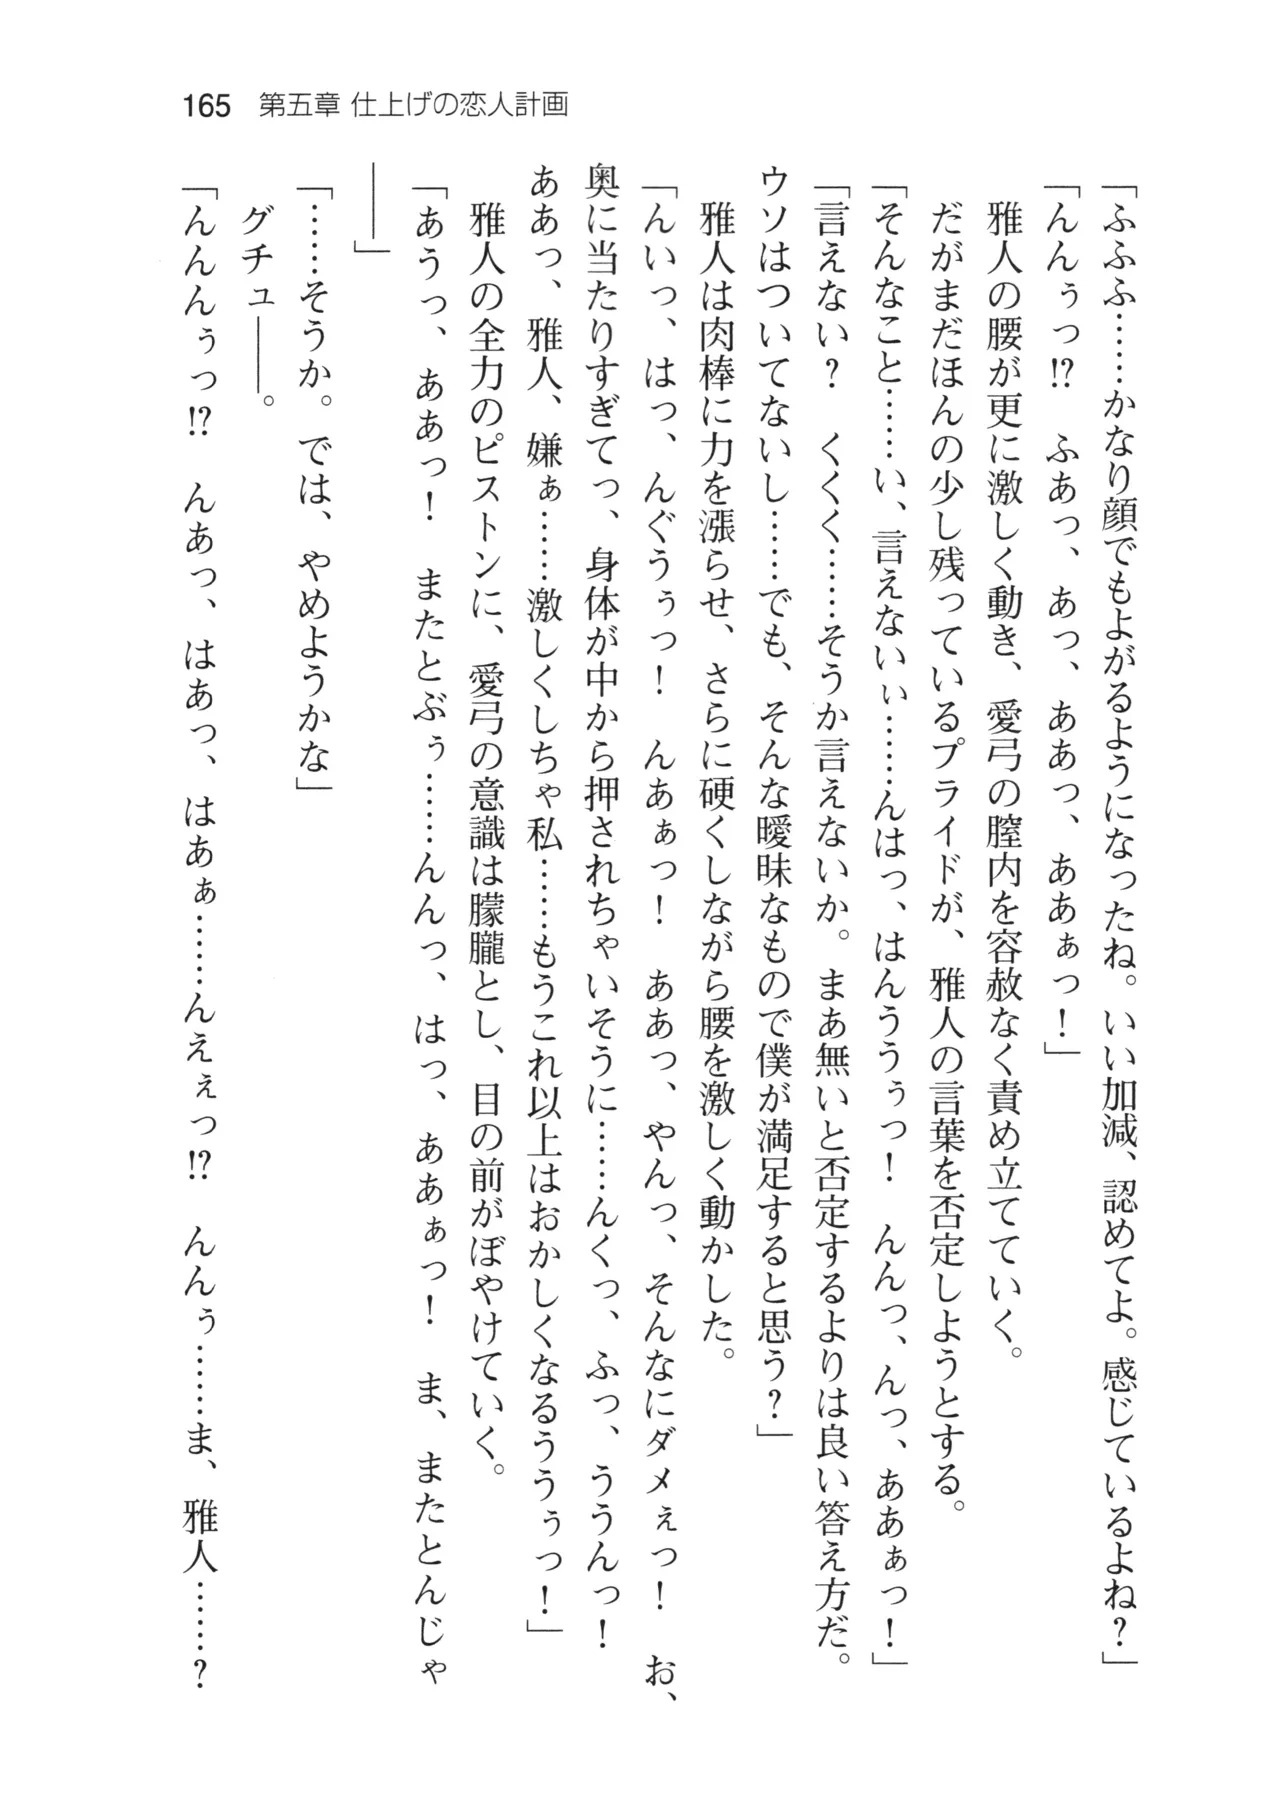 165 第五章 仕上げの恋人計画
「ふふふ……かなり顔でもよがるようになったね。いい加減、認めてよ。感じているよね？」
「んんぅっ!?　ふあっ、あっ、ああっ、ああぁっ！」
　雅人の腰が更に激しく動き、愛弓の膣内を容赦なく責め立てていく。
　だがまだほんの少し残っているプライドが、雅人の言葉を否定しようとする。
「そんなこと……い、言えないぃ……んはっ、はんううぅっ！　んんっ、んっ、ああぁっ！」
「言えない？　くくく……そうか言えないか。まあ無いと否定するよりは良い答え方だ。
ウソはついてないし……でも、そんな曖昧なもので僕が満足すると思う？」
　雅人は肉棒に力を漲らせ、さらに硬くしながら腰を激しく動かした。
「んいっ、はっ、んぐうぅっ！　んあぁっ！　ああっ、やんっ、そんなにダメぇっ！　お、
奥に当たりすぎてっ、身体が中から押されちゃいそうに……んくっ、ふっ、ううんっ！
ああっ、雅人、嫌ぁ……激しくしちゃ私……もうこれ以上はおかしくなるううぅっ！」
　雅人の全力のピストンに、愛弓の意識は朦朧とし、目の前がぼやけていく。
「あうっ、ああっ！　またとぶぅ……んんっ、はっ、ああぁっ！　ま、またとんじゃ
――」
「……そうか。では、やめようかな」
　グチュ――。
「んんんぅっ!?　んあっ、はあっ、はあぁ……んえぇっ!?　んんぅ……ま、雅人……？